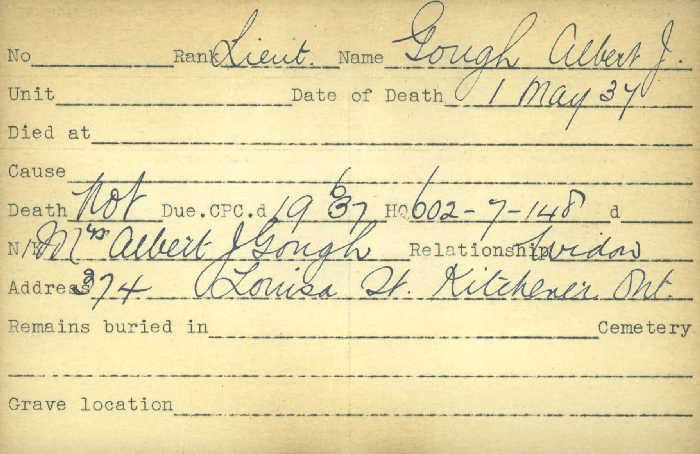 No Rank Lieut. Name Gough Albert J.
Unit Date of Death 1 May 37
Died at
Cause
Death Not Due. CPC.d 19 6 37 HQ 602-7-148 d
N/K Mrs Albert J Gough Relationship Widow
Address 374 Louisa St. Kitchener. Ont.
Remains buried in Cemetery
Grave location